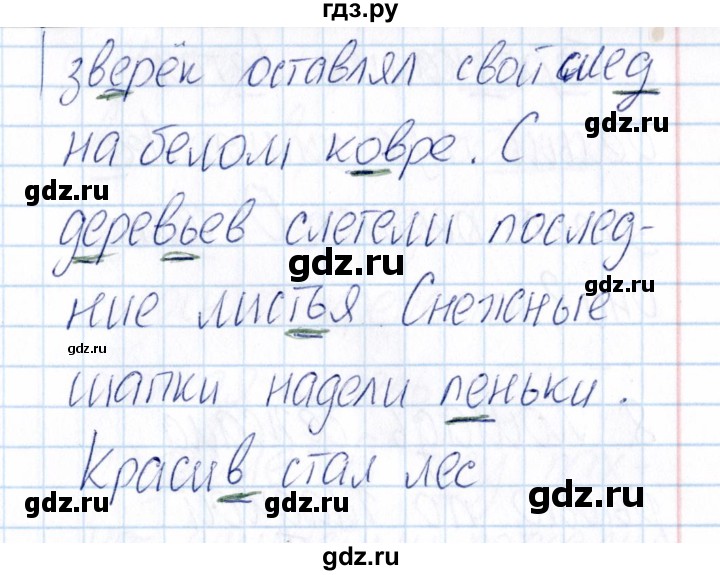 гдз.ру
зверёк оставлял свой след
на белом ковре. С
gdz.ru
gdz.ru
деревьев слетели послед-
gdz.ru
ние листья Снежные
gdz.ru
шапки надели пеньки.
Красив стал лес
gdz.ru
gdz.ru
gdz.ru
gdz.ru